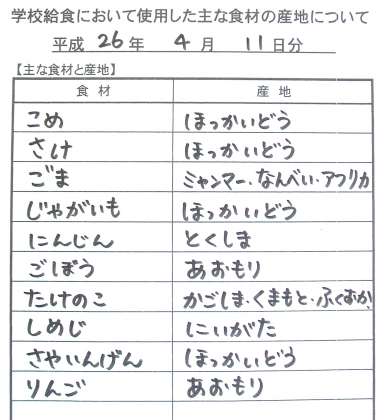 学校給食において使用した主な食材の産地について
平成 26 年 4 月 11 日分
【主な食材と産地】
食材 産地
こめ ほっかいどう
さけ ほっかいどう
ごま ミャンマー・なんべい・アフリカ
じゃがいも ほっかいどう
にんじん とくしま
ごぼう あおもり
たけのこ かごしま・くまもと・ふくおか
しめじ にいがた
さやいんげん ほっかいどう
りんご あおもり